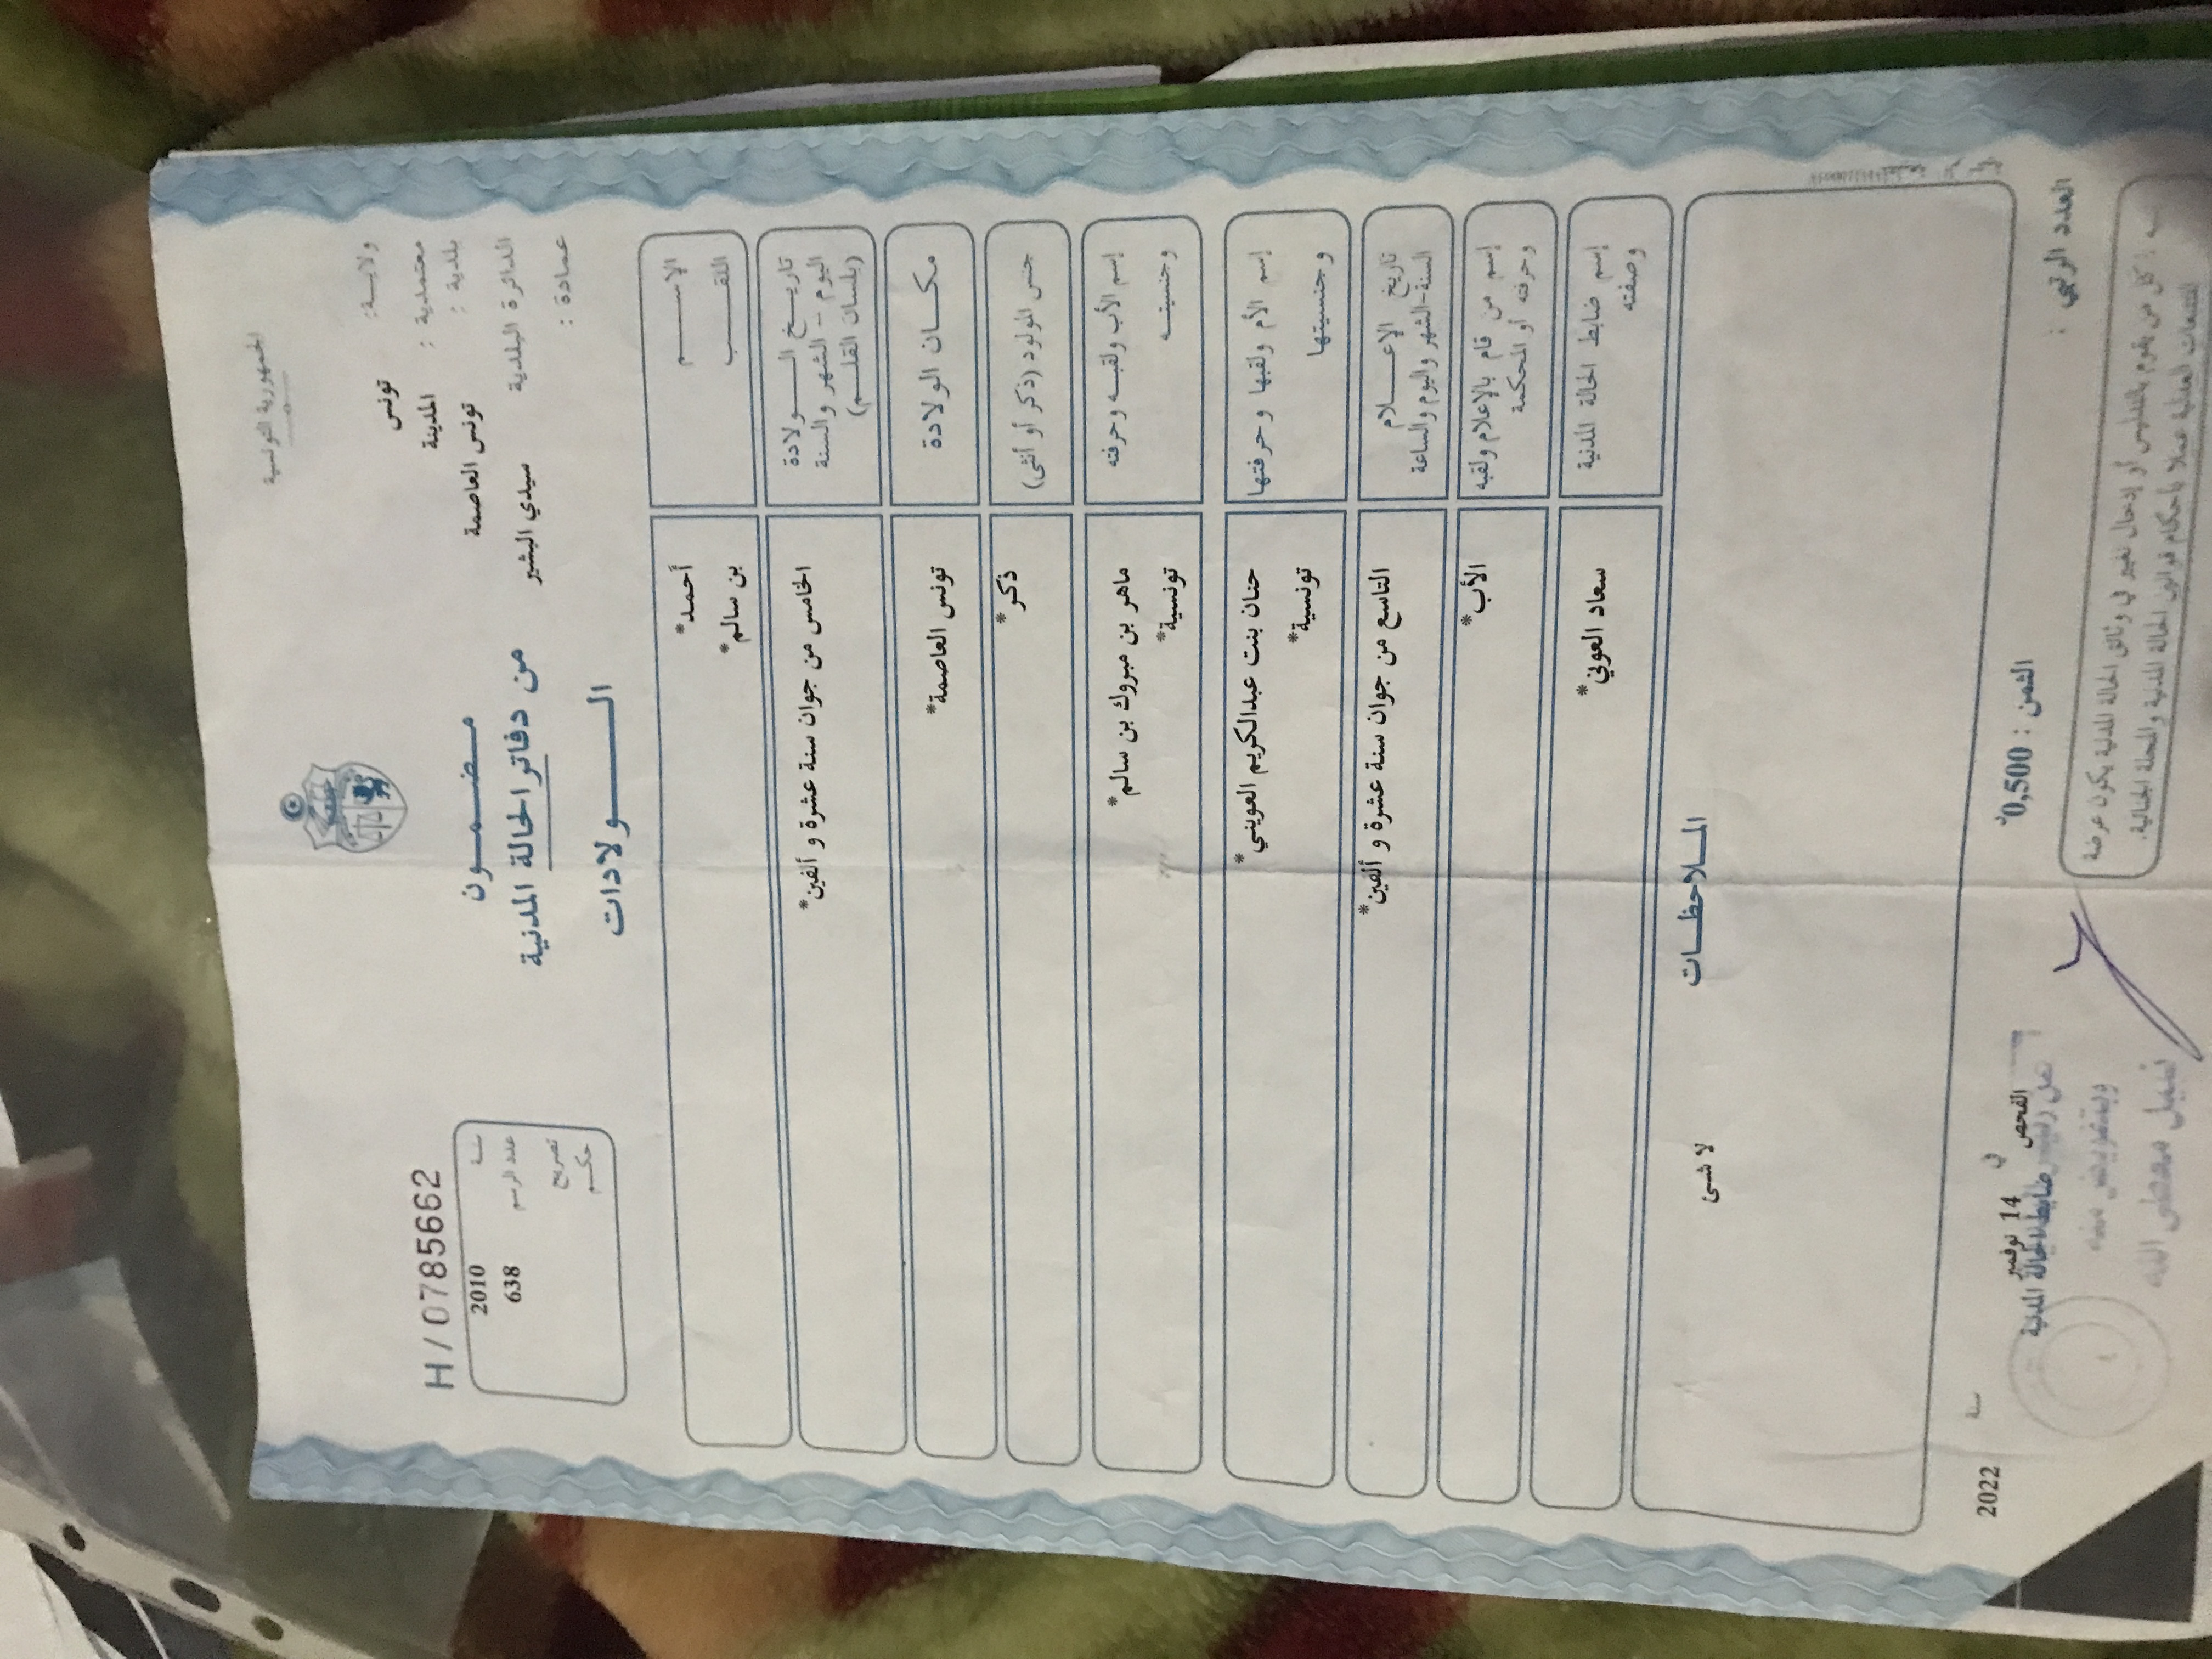 الجمهورية التونسية
ولاية: تونس
معتمدية : المدينة
بلدية : تونس العاصمة
الدائرة البلدية سيدي البشير
عمادة :
مضمون
من دفاتر الحالة المدنية
الولادات
H/0785662
سنة 2010
عدد الرسم 638
تصريح
حكم
الاسم أحمد*
اللقب بن سالم*
تاريخ الولادة
اليوم - الشهر والسنة
(بلسان القلم)
الخامس من جوان سنة عشرة و ألفين*
مكان الولادة تونس العاصمة*
جنس المولود (ذكر أو أنثى) ذكر*
إسم الأب ولقبه وحرفته ماهر بن مبروك بن سالم*
وجنسيته تونسية*
إسم الأم ولقبها وحرفتها حنان بنت عبدالكريم العويني*
وجنسيتها تونسية*
تاريخ الإعلام
السنة-الشهر واليوم والساعة
التاسع من جوان سنة عشرة و ألفين*
إسم من قام بالإعلام ولقبه
وحرفته أو المحكمة
الأب*
إسم ضابط الحالة المدنية
وصفته
سعاد العوني*
الملاحظات
لا شئ
العدد الرتبي :
الثمن : 0,500د
الفحص في 14 نوفمبر سنة 2022
ضابط الحالة المدنية
وبتفويض منه
نبيل معطى الله
كل من يقوم بالتدليس أو إدخال تغيير في وثائق الحالة المدنية يكون عرضة
للتتبعات العدلية عملا بأحكام قوانين الحالة المدنية والمجلة الجنائية.